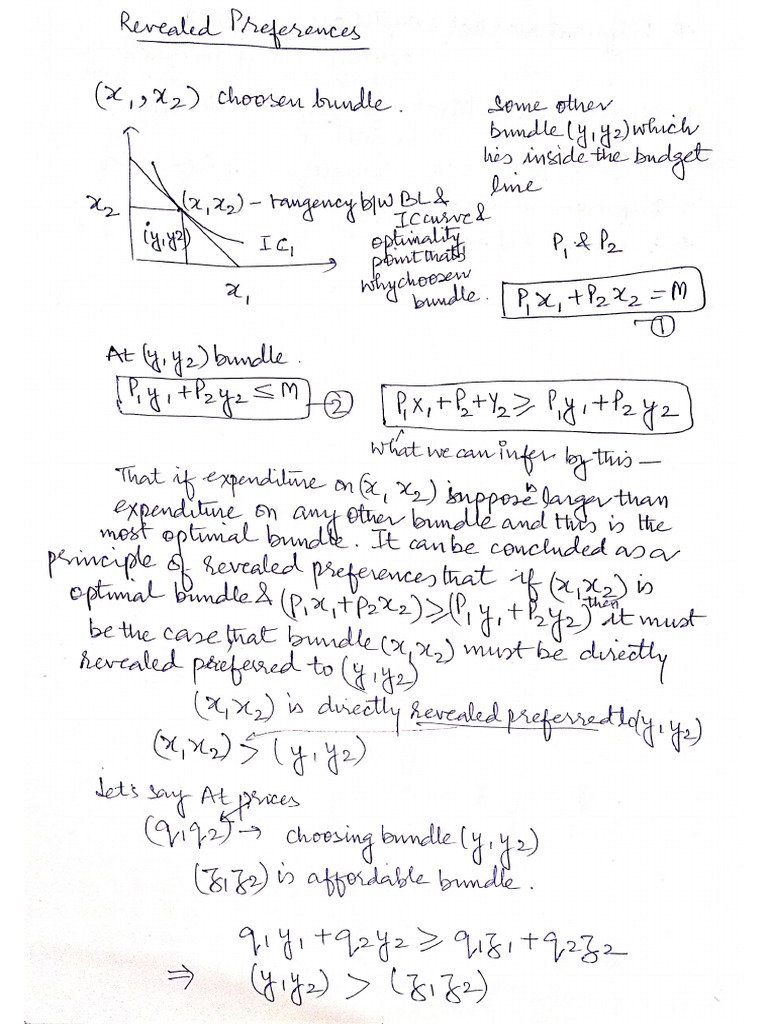 Revealed Preferences
(x1, x2) choosen bundle.
Some other
bundle (y1 y2) which
lies inside the budget
line
x2
(x1 x2) - tangency b/w BL &
IC curve &
optimality
point thats
why choosen
bundle.
(y1 y2)
IC1
x1
P1 & P2
P1x1 + P2x2 = M
①
At (y1 y2) bundle.
P1y1 + P2y2 ≤ M ②
P1x1 + P2 + Y2 ≥ P1y1 + P2y2
What we can infer by this —
That if expenditure on (x1 x2) suppose is larger than
expenditure on any other bundle and this is the
most optimal bundle. It can be concluded as a
principle of revealed preferences that if (x1 x2) is
optimal bundle & (P1x1 + P2x2) ≥ (P1y1 + P2y2) then it must
be the case that bundle (x1 x2) must be directly
revealed preferred to (y1 y2)
(x1 x2) is directly revealed preferred to (y1 y2)
(x1 x2) > (y1 y2)
Let's say At prices
(q1 q2) → choosing bundle (y1 y2)
(z1 z2) is affordable bundle.
q1y1 + q2y2 ≥ q1z1 + q2z2
⇒ (y1 y2) > (z1 z2)